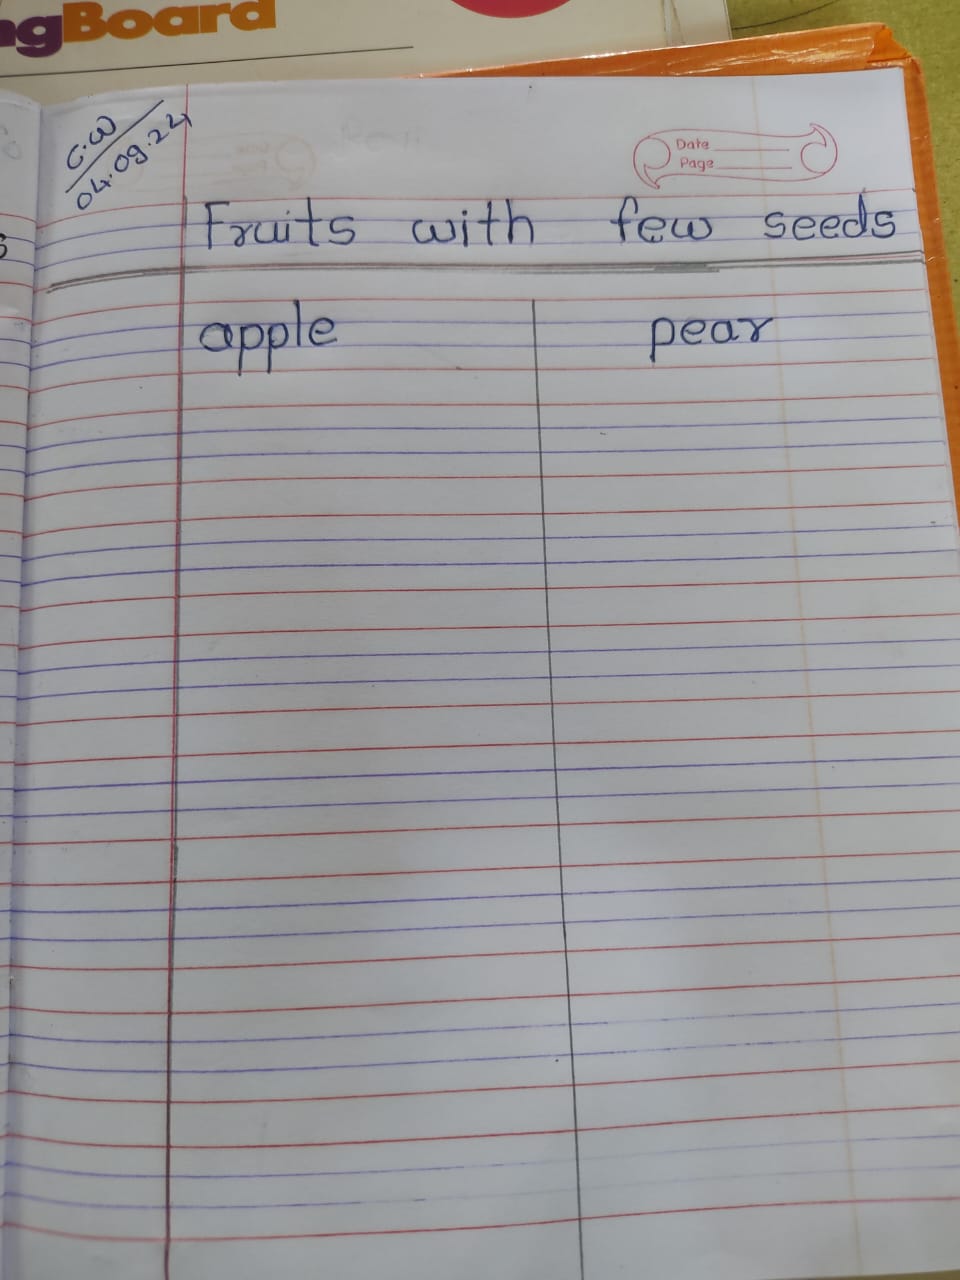 ngBoard
C.W
04.09.24
Date
Page
Fruits with few seeds
apple pear